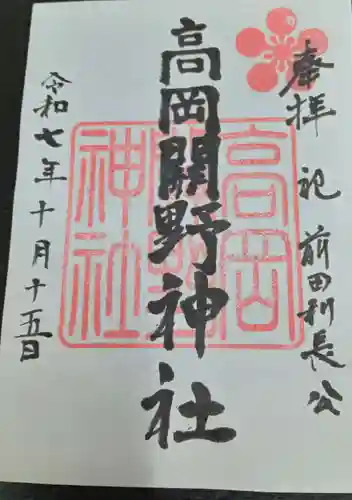 奉拝 祀 前田利長公
高岡関野神社
令和七年十月十五日
高岡
関野
神社